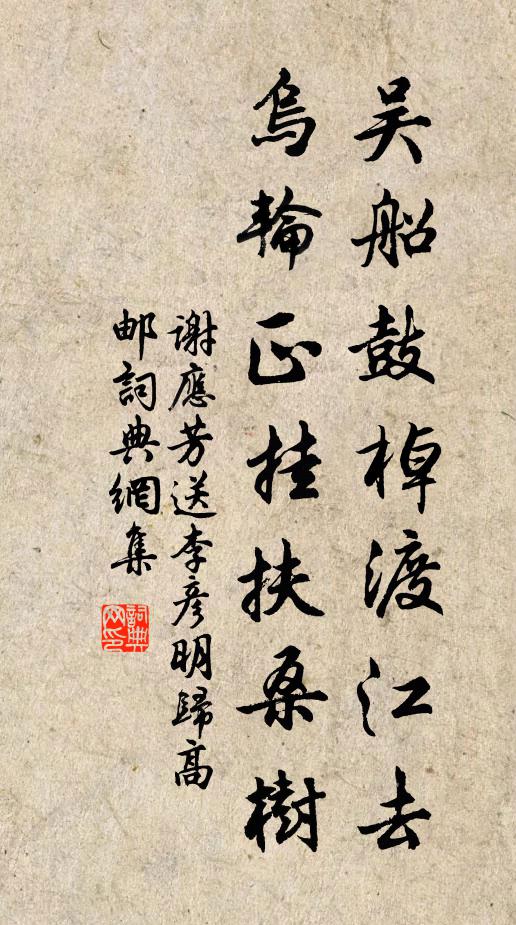 吴船鼓棹渡江去
烏輪正挂扶桑樹
謝應芳送李彦明歸高
邮詞典網集
詞典网印